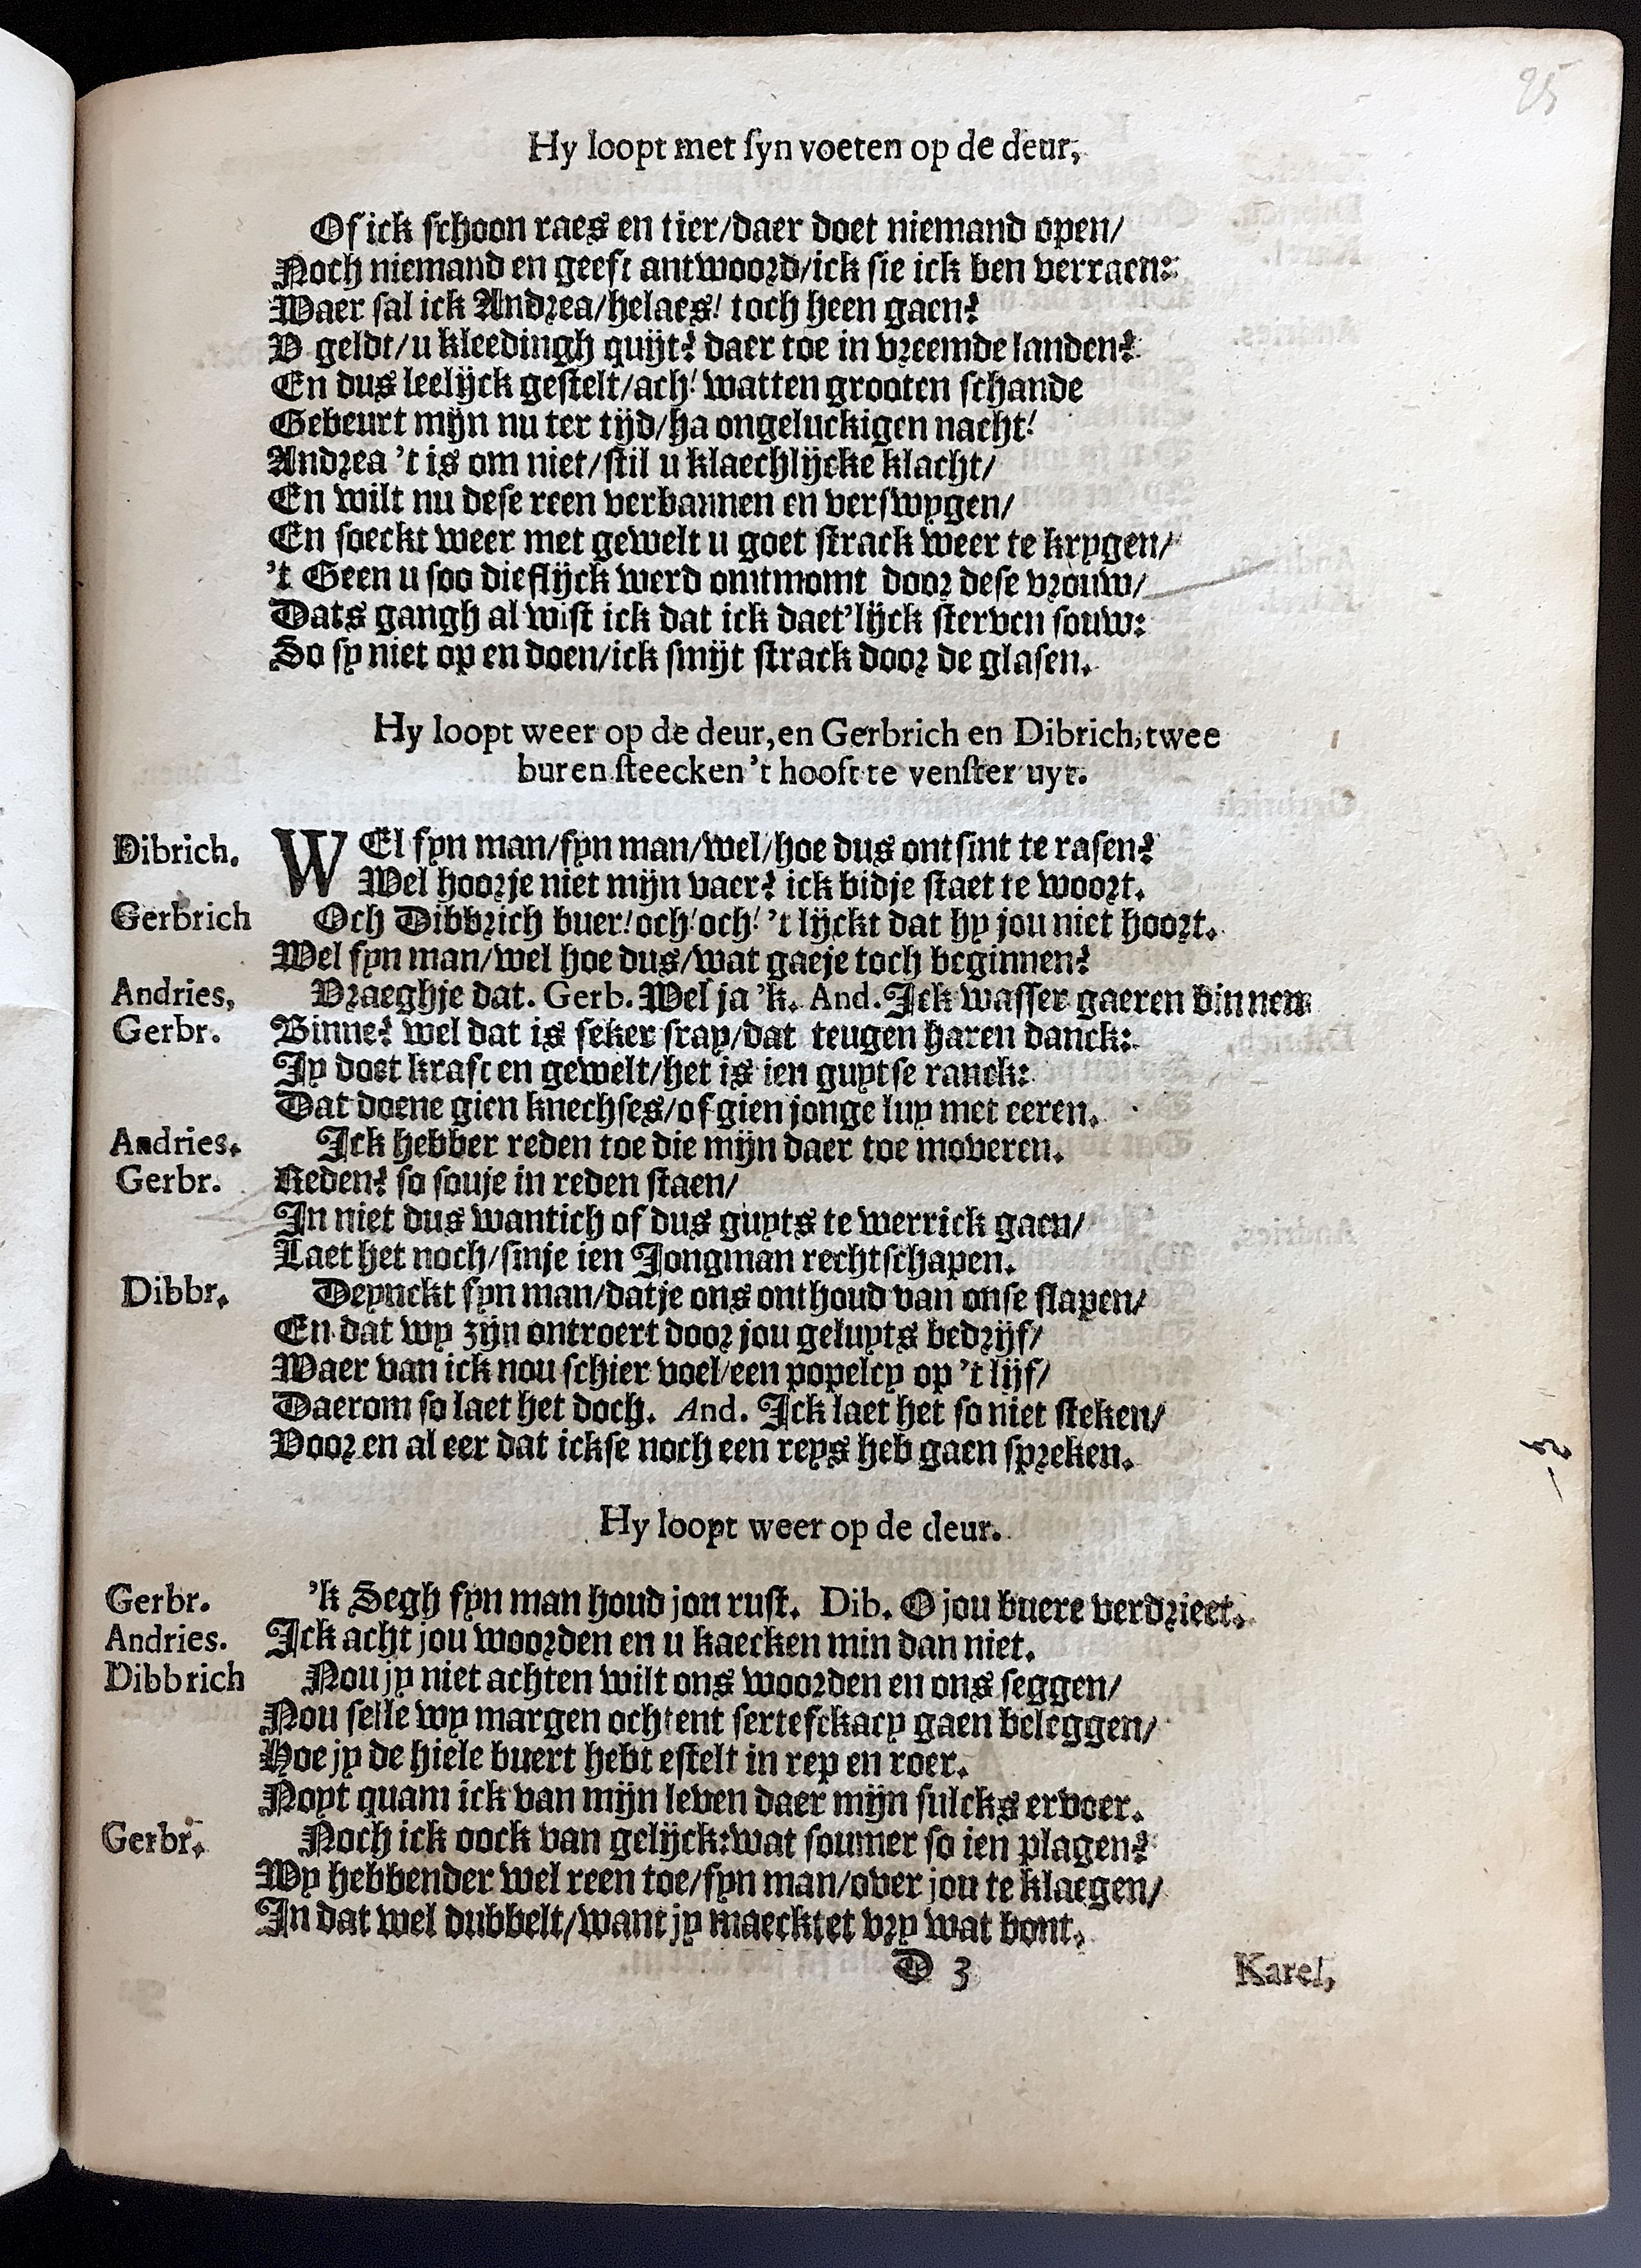 25
Hy loopt met syn voeten op de deur,
Of ick schoon raes en tier/daer doet niemand open/
Noch niemand en geeft antwoord/ick sie ick ben verraen:
Waer sal ick Andrea/helaes! toch heen gaen?
V geldt/u kleedingh quijt? daer toe in vreemde landen?
En dus leelijck gestelt/ach! watten grooten schande
Gebeurt mijn nu ter tijd/ha ongeluckigen nacht!
Andrea 't is om niet/stil u klaechlijcke klacht/
En wilt nu dese reen verbannen en verswygen/
En soeckt weer met gewelt u goet strack weer te krygen/
't Geen u soo dieflijck werd ontmomt door dese vrouw/
Dats gangh al wist ick dat ick daet'lijck sterven souw:
So sy niet op en doen/ick smijt strack door de glasen.
Hy loopt weer op de deur, en Gerbrich en Dibrich, twee
buren steecken 't hooft te venster uyt.
Dibrich. WEl fyn man/fyn man/wel/hoe dus ontsint te rasen?
Wel hoorje niet mijn vaer? ick bidje staet te woort.
Gerbrich Och Dibbrich buer! och! och! 't lijckt dat hy jou niet hoort.
Wel fyn man/wel hoe dus/wat gaeje toch beginnen?
Andries, Vraeghje dat. Gerb. Wel ja 'k. And. Ick wasser gaeren binnen
Gerbr. Binne? wel dat is seker fray/dat teugen haren danck:
Jy doet kraft en gewelt/het is ien guytse ranck:
Dat doene gien knechses/of gien jonge luy met eeren.
Andries. Ick hebber reden toe die mijn daer toe moveren.
Gerbr. Reden? so souje in reden staen/
In niet dus wantich of dus guyts te werrick gaen/
Laet het noch/sinje ien Jongman rechtschapen.
Dibbr. Deynckt fyn man/datje ons onthoud van onse slapen/
En dat wy zijn ontroert door jou geluyts bedrijf/
Waer van ick nou schier voel/een popelcy op 't lijf/
Daerom so laet het doch. And. Ick laet het so niet steken/
Voor en al eer dat ickse noch een reys heb gaen spreken.
Hy loopt weer op de deur.
Gerbr. 'k Segh fyn man houd jou rust. Dib. O jou buere verdrieet.
Andries. Ick acht jou woorden en u kaecken min dan niet.
Dibbrich Nou jy niet achten wilt ons woorden en ons seggen/
Nou selle wy margen ochtent sertefckacy gaen beleggen/
Hoe jy de hiele buert hebt estelt in rep en roer.
Noyt quam ick van mijn leven daer mijn sulcks ervoer.
Gerbr. Noch ick oock van gelijck: wat soumer so ien plagen?
Wy hebbender wel reen toe/fyn man/over jou te klaegen/
In dat wel dubbelt/want jy maecktet vry wat bont.
D 3 Karel,